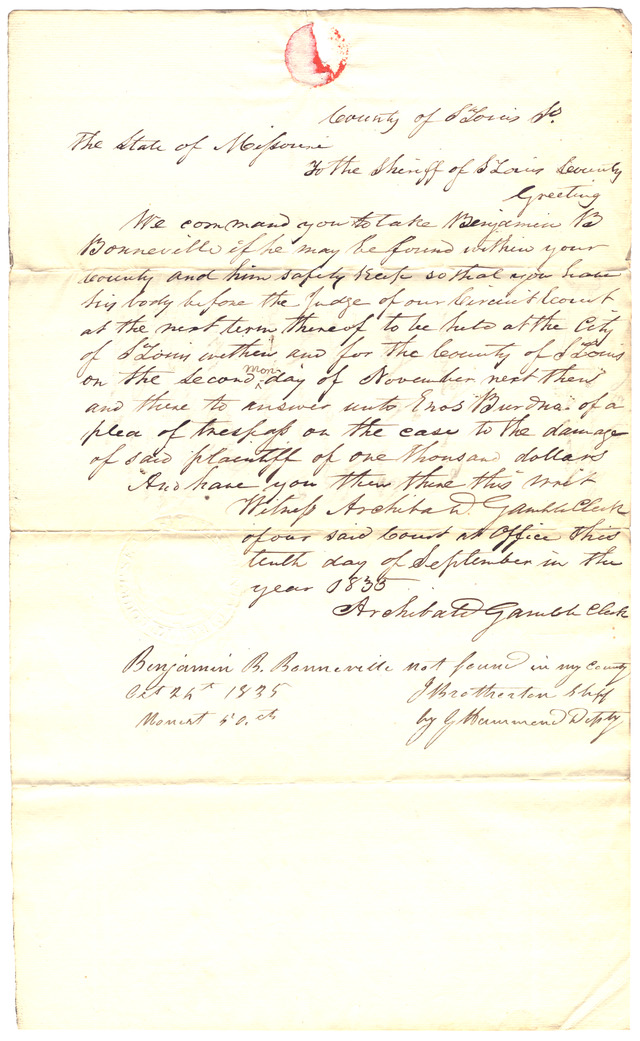 County of St Louis Ss.
The State of Missouri
To the Sheriff of St Louis County
Greeting
We command you to take Benjamin B
Bonneville if he may be found within your
County and him safely keep so that you have
his body before the Judge of our Circuit Court
at the next term thereof to be held at the City
of St Louis within and for the County of St Louis
on the second Monday of November next then
and there to answer unto Enos of a
plea of trespass on the case to the damage
of said plaintiff of one thousand dollars
And have you then there this writ
Witness Archibald Gamble Clerk
of our said Court at Office this
tenth day of September in the
year 1835
Archibald Gamble Clerk
Benjamin B. Bonneville not found in my County
Oct 1835 J Brotherton Shff
Nonest 50. cts by G Hammond Depty